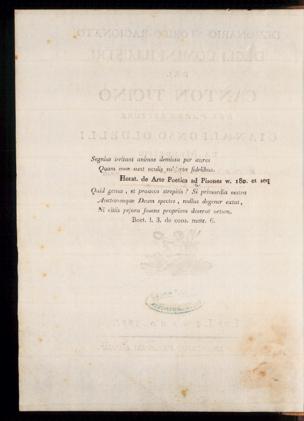 Segnius irritant animos demissa per aures
Quam quae sunt oculis subjecta fidelibus.
Horat. de Arte Poetica ad Pisones v. 180. et seq
Quid genus, et proavos strepitis? Si primordia vestra
Auctoremque Deum spectes, nullus degener extat,
Ni vitiis pejora fovens proprium deserat ortum.
Boet. l. 3. de cons. metr. 6.